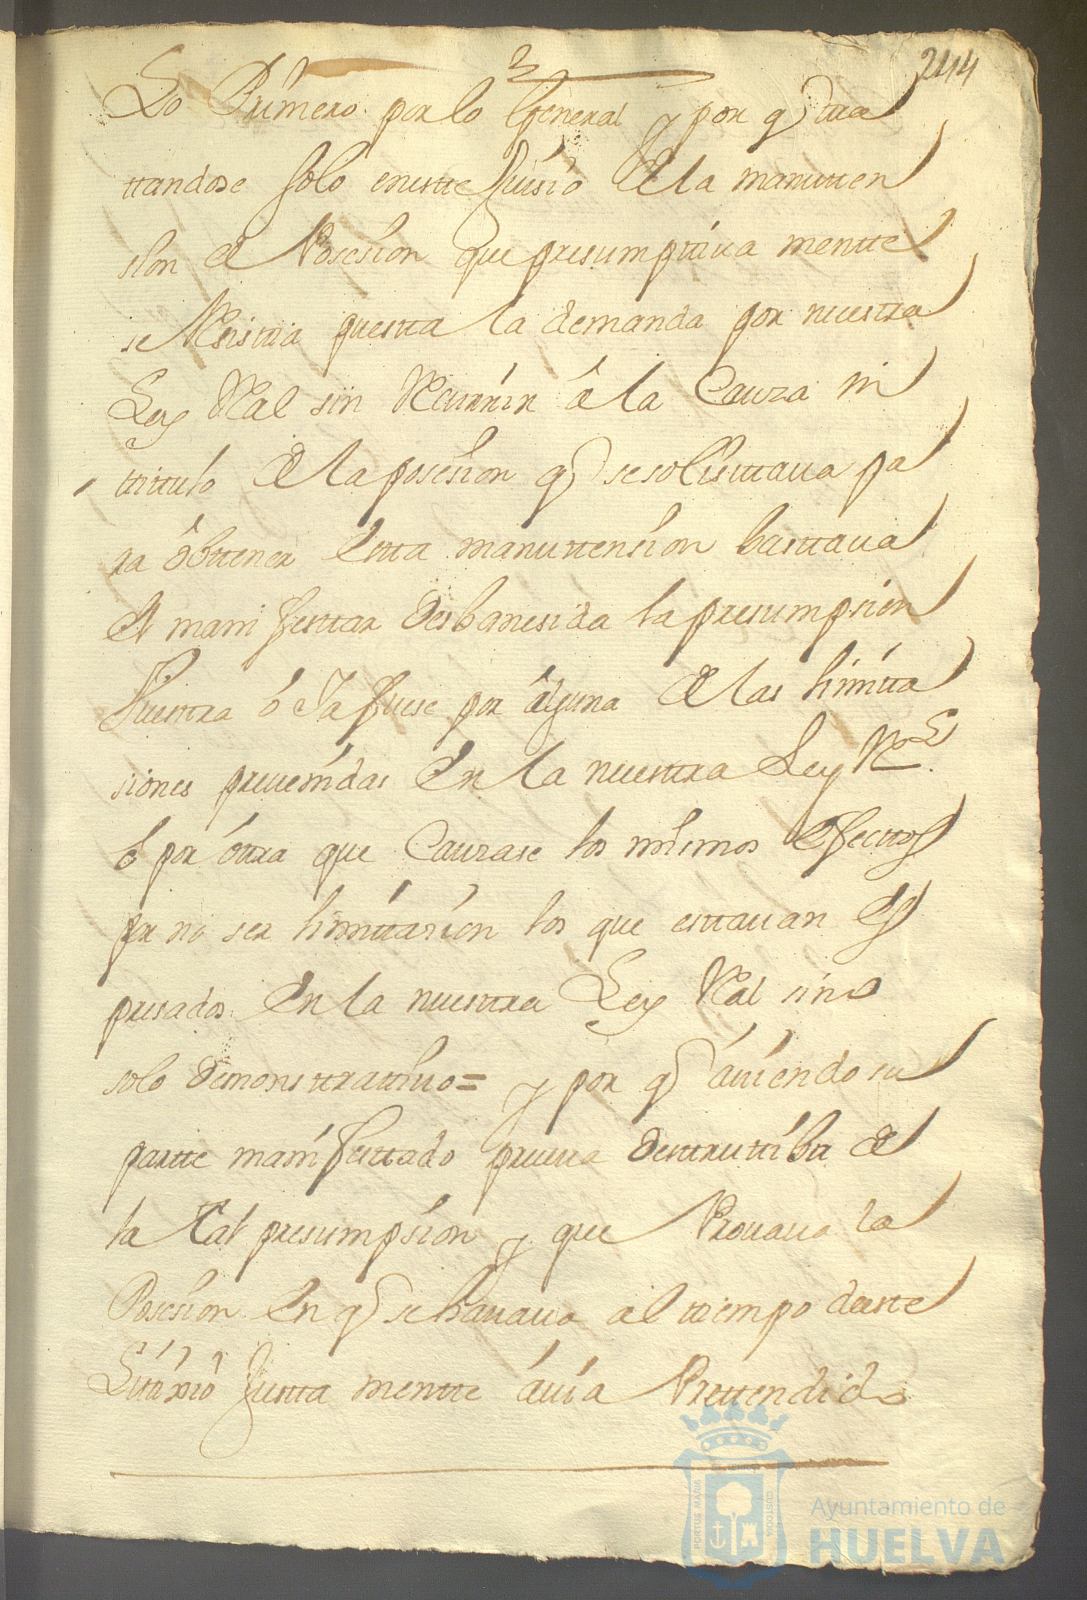 244
Lo Primero por lo General y por q tra
ttandose solo en estte Juisio de la manutten
sion de Posesion que presumptiva mentte
se
puesta la demanda por nuestra
Ley Real sin Recurrir â la Cauza ni
tittulo de la posesion q se solisittava pa
ra ôbttener estta manuttension basttava
el manifesttar desbanesida la presumpsion
Nuestra ó Ya fuese por âlguna de las limitta
siones prevenidas en la nuestra Ley Rl
ô por ôtra que Cauzase los mismos efecttos
por no ser limittasion los que esttavan es
presados en la nuestra Ley Real sino
solo demonstrattivo = y por q aviendo su
partte manifesttado prueva
de
la Tal presumpsion y que Provava la
Posesion en q se hallava al tiempo deste
Litixio Justta mentte avia Prettendido
Ayuntamiento de
HUELVA
PORTUS MARIS
CUSTODIA